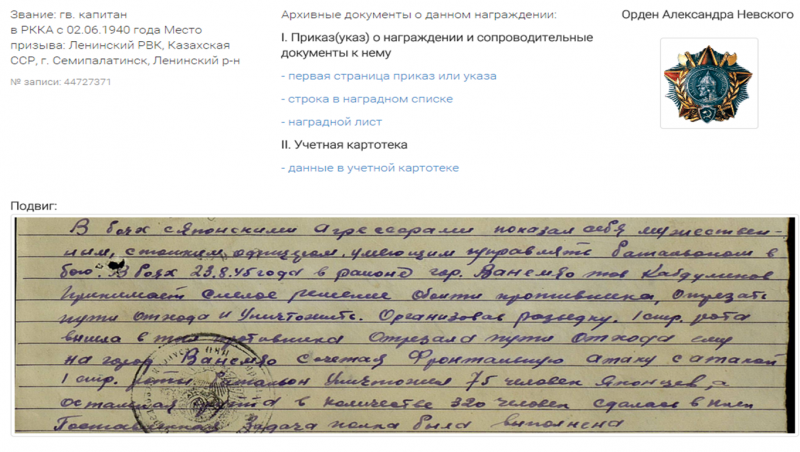 Звание: гв. капитан
в РККА с 02.06.1940 года Место
призыва: Ленинский РВК, Казахская
ССР, г. Семипалатинск, Ленинский р-н
№ записи: 44727371
Архивные документы о данном награждении:
I. Приказ(указ) о награждении и сопроводительные
документы к нему
- первая страница приказ или указа
- строка в наградном списке
- наградной лист
II. Учетная картотека
- данные в учетной картотеке
Орден Александра Невского
Подвиг:
В боях с Японскими агрессорами показал себя мужествен-
ным, стойким офицером, умеющим управлять батальоном в
бою. В боях 23.8.45 года в районе гор. Ванемяо тов Кабдулинов
Принимает смелое решение обойти противника, отрезать
пути отхода и Уничтожить. Организовав разведку. 1 стр. рота
вышла в тыл противника Отрезала пути Отхода ему
на город Ванемяо Сочетая Фронтальную атаку с атакой
1 стр. роты, батальон Уничтожил 75 человек Японцев, а
остальная в количестве 320 человек сдалась в плен
Поставленная Задача полка была выполнена